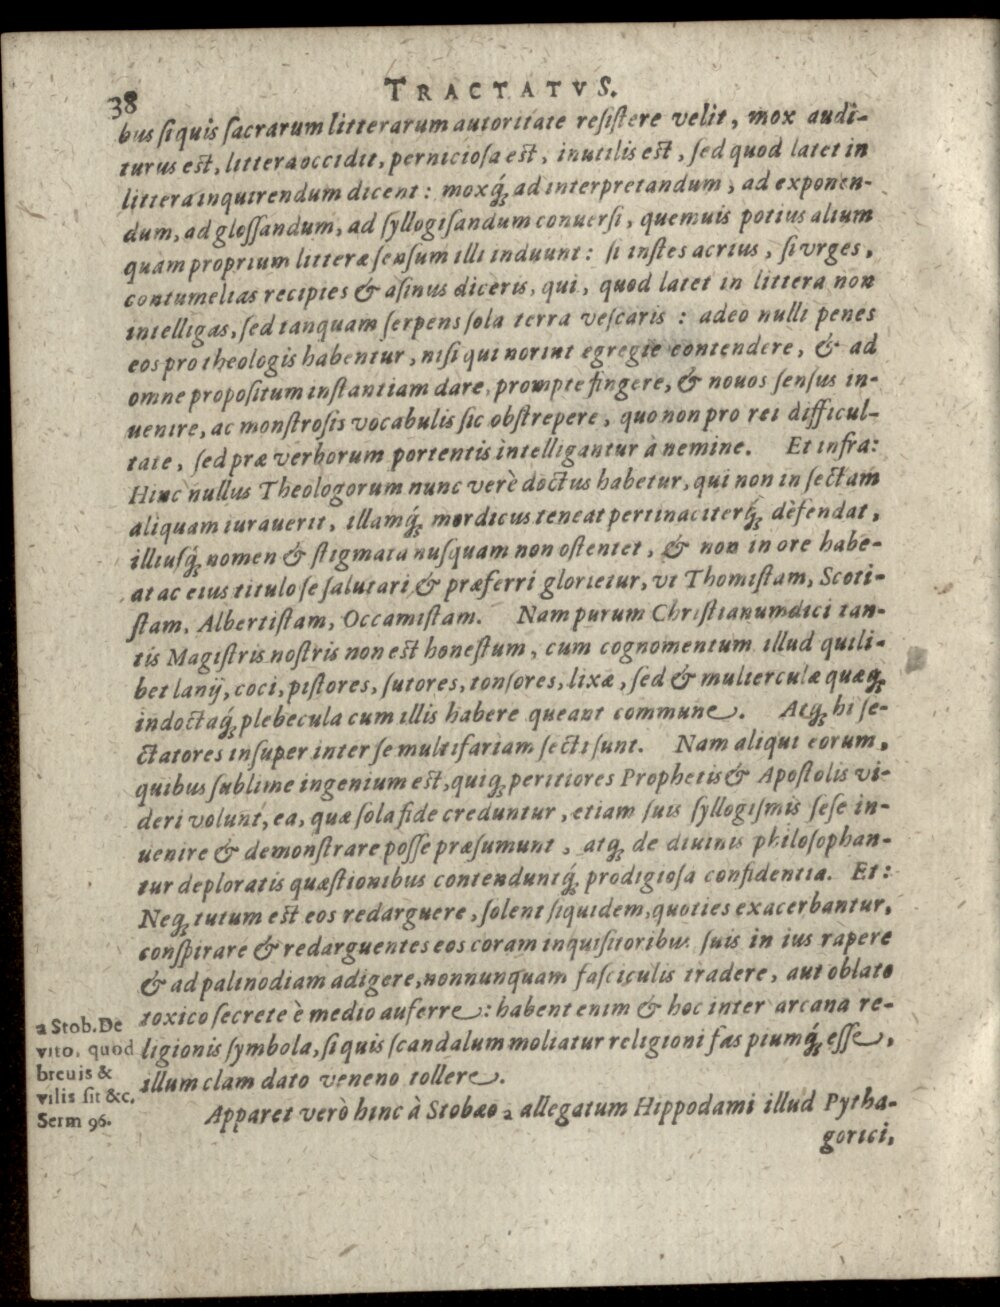 38
TRACTATVS.
bus ſi quis ſacrarum litterarum autoritate reſiſtere velit, mox audi-
turus eſt, littera occidit, pernicioſa eſt, inutilis eſt, ſed quod latet in
littera inquirendum dicent: moxq́ꝫ ad interpretandum, ad exponen-
dum, ad gloſſandum, ad ſyllogiſandum conuerſi, quemuis potius alium
quam proprium litteræ ſenſum illi induunt: ſi inſtes acrius, ſi vrges,
contumelias recipies & aſinus diceris, qui, quod latet in littera non
intelligas, ſed tanquam ſerpens ſola terra veſcaris: adeo nulli penes
eos pro theologis habentur, niſi qui norint egregie contendere, & ad
omne propoſitum inſtantiam dare, prompte fingere, & nouos ſenſus in-
uenire, ac monſtroſis vocabulis ſic obſtrepere, quo non pro rei difficul-
tate, ſed præ verborum portentis intelligantur à nemine. Et infra:
Hinc nullus Theologorum nunc verè doctus habetur, qui non in ſectam
aliquam iurauerit, illamq́ꝫ mordicus teneat pertinaciterq́ꝫ dèfendat,
illiuſq́ꝫ nomen & ſtigmata nuſquam non oſtentet, & non in ore habe-
at ac eius titulo ſe ſalutari & præferri glorietur, vt Thomiſtam, Scoti-
ſtam, Albertiſtam, Occamiſtam. Nam purum Chriſtianum dici tan-
tis Magiſtris noſtris non eſt honeſtum, cum cognomentum illud quili-
bet lanij, coci, piſtores, ſutores, tonſores, lixæ, ſed & mulierculæ quæqꝫ
indoctaq́ꝫ plebecula cum illis habere queant commune. Atqꝫ hi ſe-
ctatores inſuper inter ſe multifariam ſecti ſunt. Nam aliqui eorum,
quibus ſublime ingenium eſt, quiqꝫ peritiores Prophetis & Apoſtolis vi-
deri volunt, ea, quæ ſola fide creduntur, etiam ſuis ſyllogiſmis ſeſe in-
uenire & demonſtrare poſſe præſumunt, atqꝫ de diuinis philoſophan-
tur deploratis quæſtionibus contenduntq́ꝫ prodigioſa confidentia. Et:
Neqꝫ tutum eſt eos redarguere, ſolent ſiquidem, quoties exacerbantur,
conſpirare & redarguentes eos coram inquiſitoribus ſuis in ius rapere
& ad palinodiam adigere, nonnunquam faſciculis tradere, aut oblato
toxico ſecrete è medio auferre: habent enim & hoc inter arcana re-
ligionis ſymbola, ſi quis ſcandalum moliatur religioni fas piumq́ꝫ eſſe,
illum clam dato veneno tollere.
Apparet verò hinc à Stobæo a allegatum Hippodami illud Pytha-
gorici,
a Stob. De
vito, quod
breuis &
vilis ſit &c.
Serm 96.